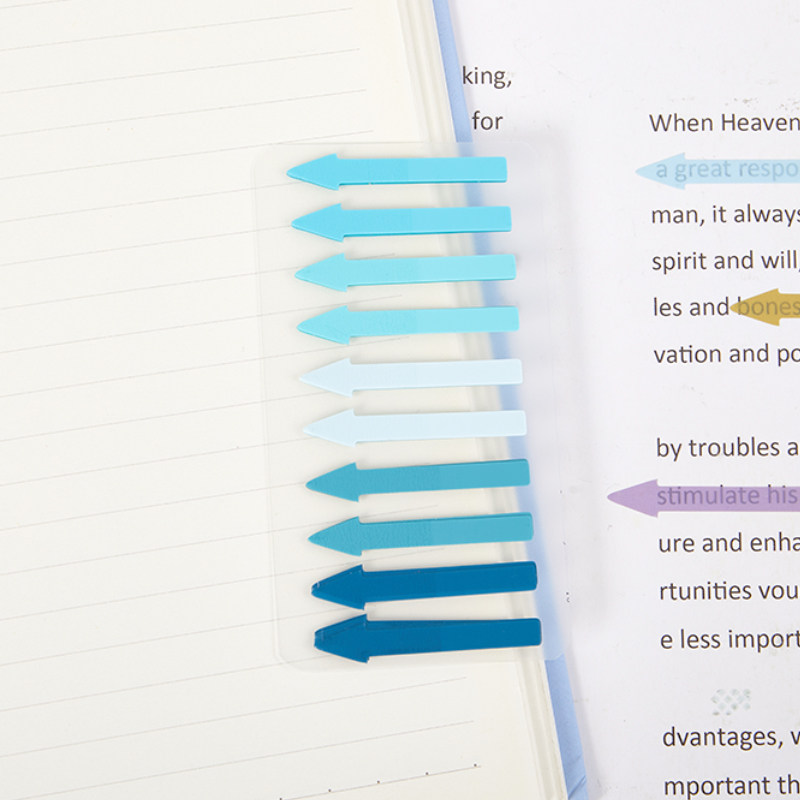 king,
for
When Heaven
a great respo
man, it always
spirit and will,
les and bones
vation and po
by troubles a
stimulate his
ure and enha
rtunities vou
e less import
dvantages, w
mportant th